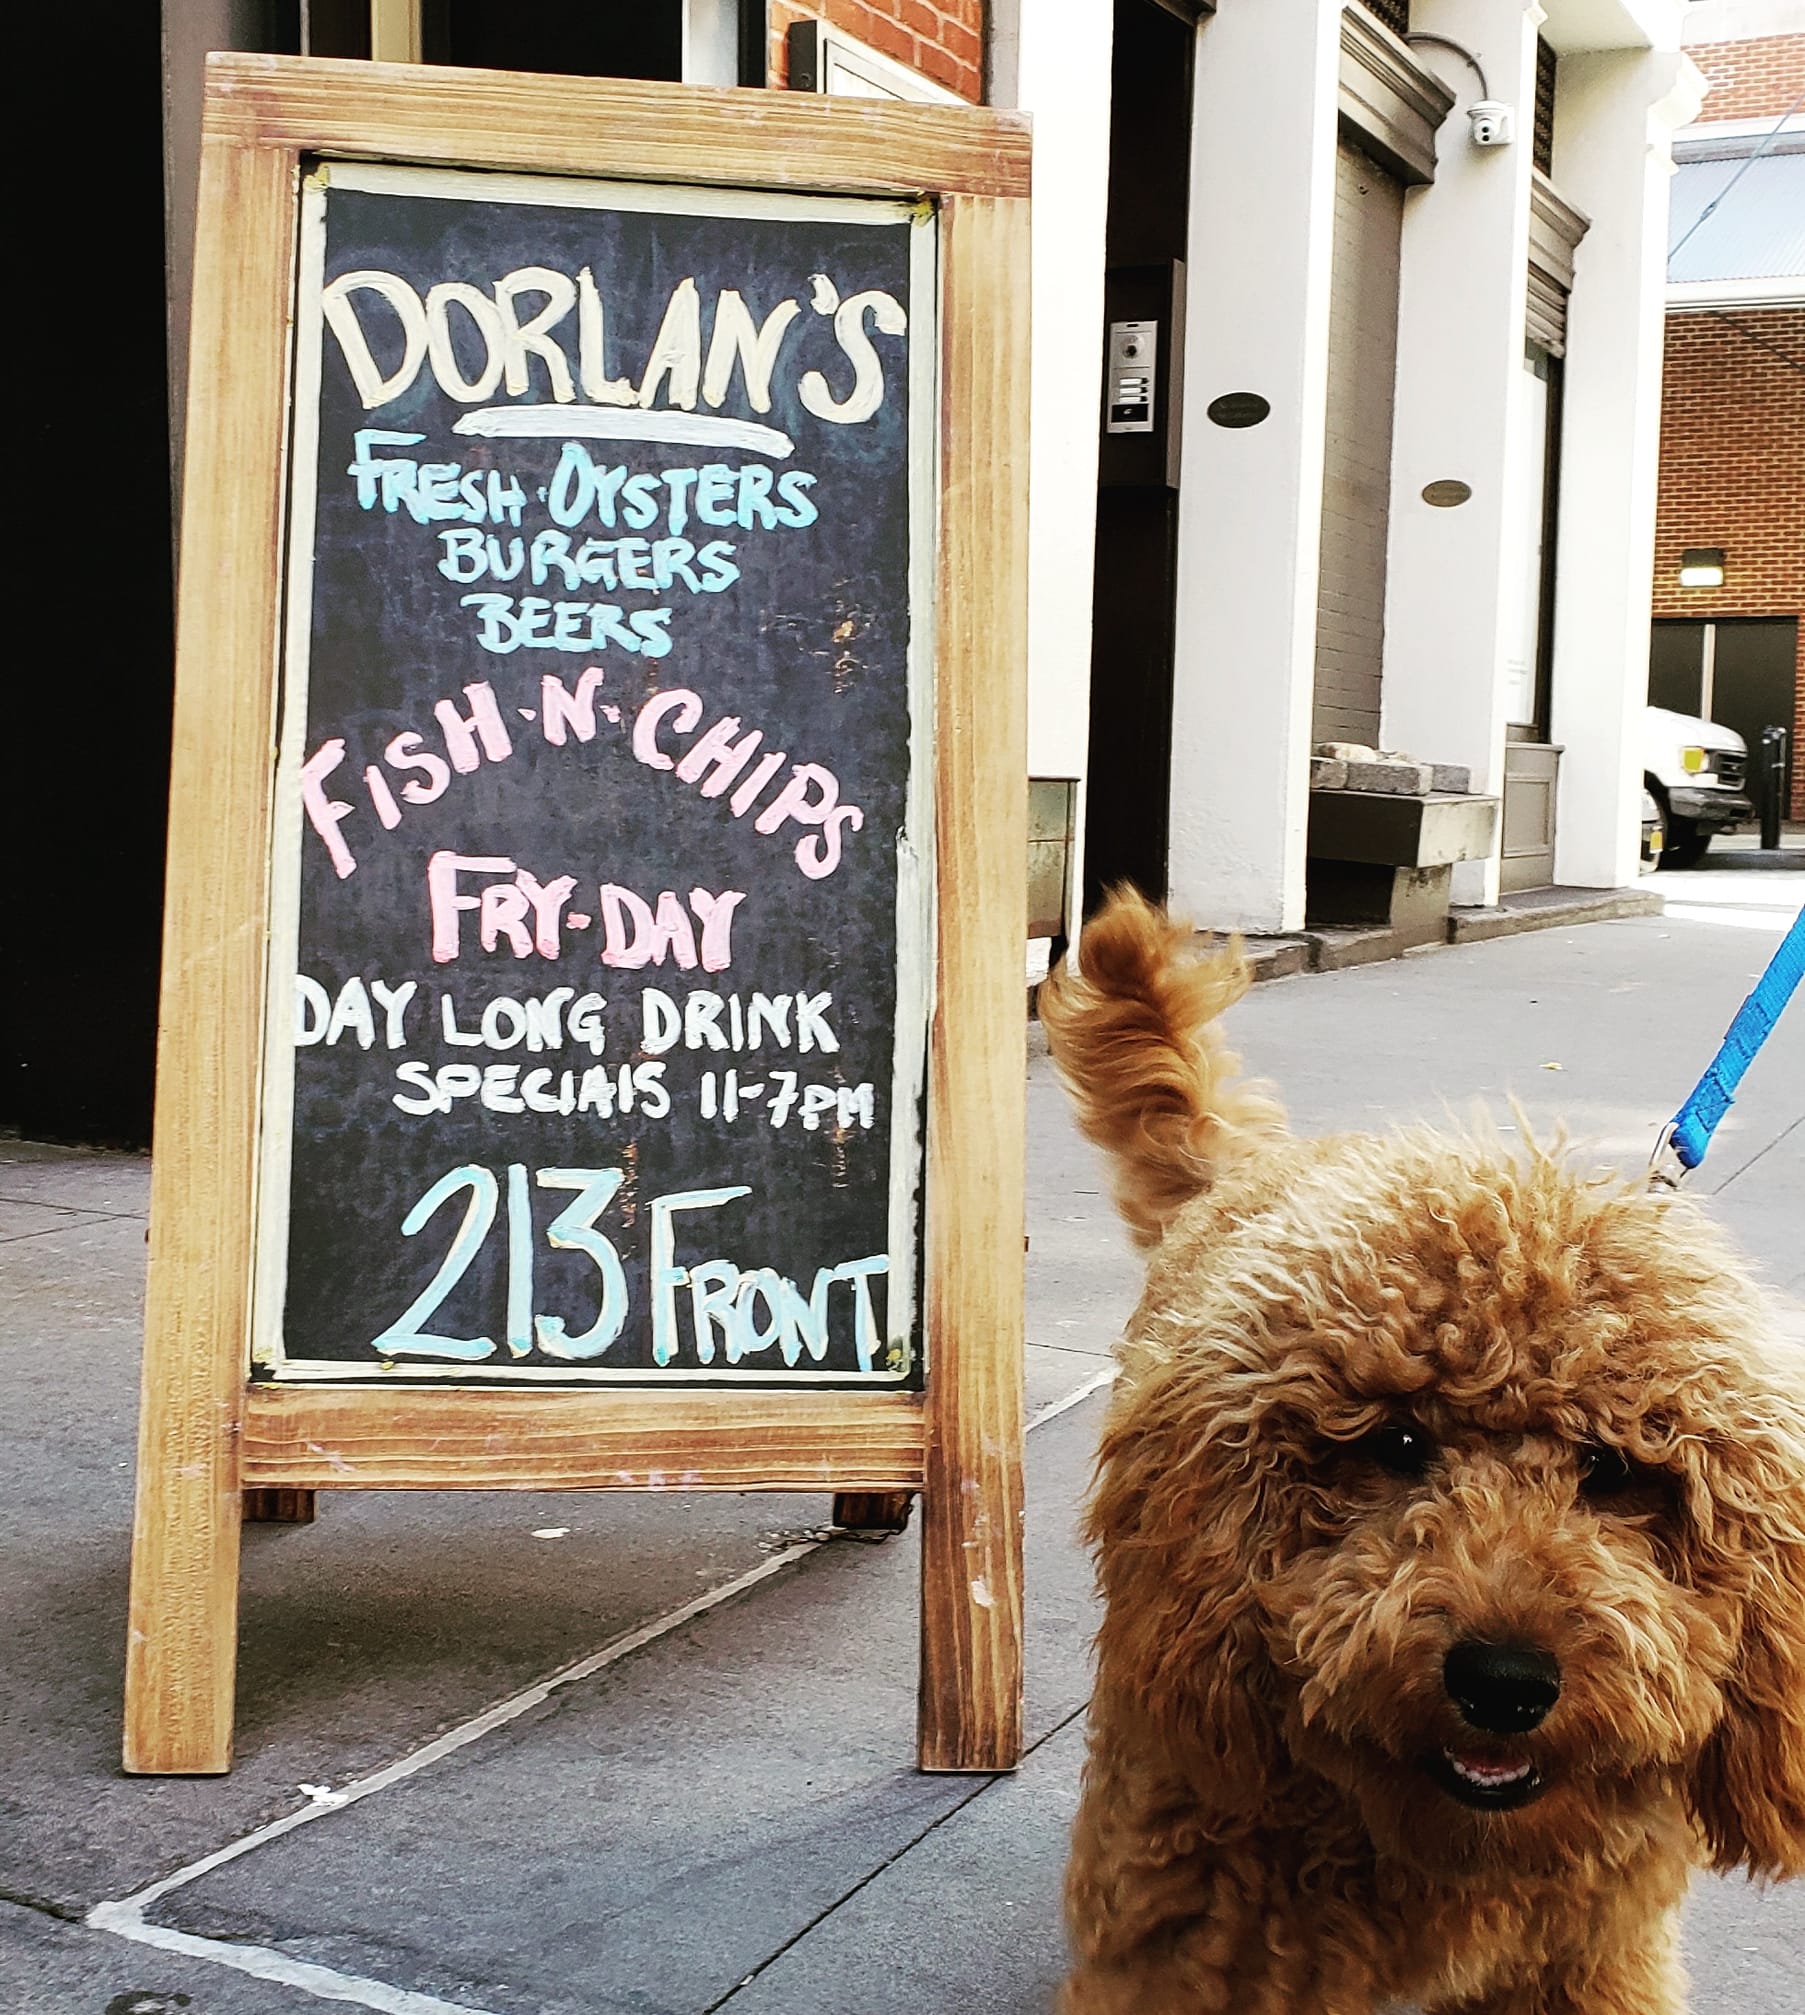 DORLAN'S
FRESH·OYSTERS
BURGERS
BEERS
FISH·N·CHIPS
FRY-DAY
DAY LONG DRINK
SPECIAlS 11-7PM
213 FRONT